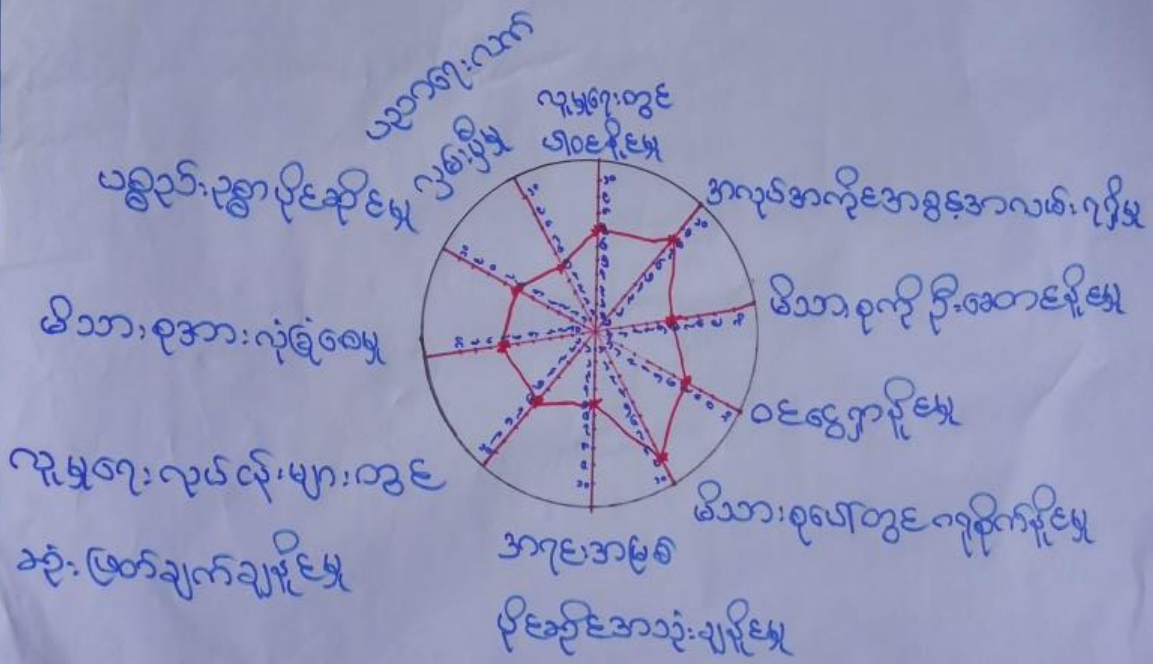 ပညာရေးလက်
လှမ်းမှီမှု
လူမှုရေးတွင်
ပါဝင်နိုင်မှု
အလုပ်အကိုင်အခွင့်အလမ်းရရှိမှု
မိသားစုကို ဦးဆောင်နိုင်မှု
ဝင်ငွေရှာနိုင်မှု
မိသားစုပေါ်တွင် ဂရုစိုက်နိုင်မှု
အရင်းအမြစ်
ပိုင်ဆိုင်အသုံးချနိုင်မှု
လူမှုရေးလုပ်ငန်းများတွင်
ဆုံးဖြတ်ချက်ချနိုင်မှု
မိသားစုအားလုံခြုံစေမှု
ပစ္စည်းဥစ္စာပိုင်ဆိုင်မှု